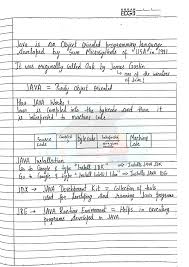 Java is an Object Oriented programming language
developed by Sun Microsystems of USA in 1991
It was originally called Oak by James Goslin
one of the inventors
of Java
JAVA = Purely Object Oriented
How JAVA Works?
Java is compiled into the bytecode and then it
is interpreted to machine code
Source
Code
Bytecode
Machine
Code
JAVA Installation
Go to Google & type "Install JDK" => Installs JAVA JDK
Go to Google & type
JDK → JAVA Development Kit = Collection of tools
used for developing and running Java programs
JRE → JAVA Runtime Environment = Helps in executing
programs developed in JAVA